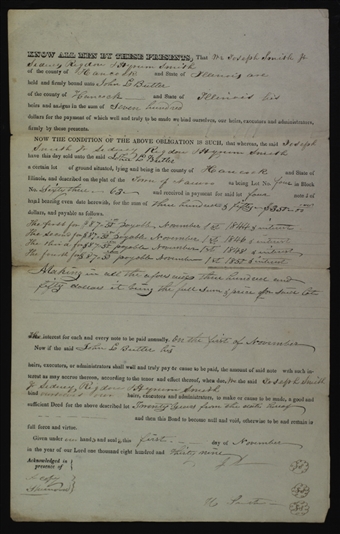 KNOW ALL MEN BY THESE PRESENTS, That We Joseph Smith Jr
Sidney Rigdon & Hyrum Smith
of the county of Hancock and State of Illinois are
held and firmly bound unto John L Butler
of the county of Hancock and State of Illinois his
heirs and assigns in the sum of Seven hundred
dollars for the payment of which well and truly to be made we bind ourselves, our heirs, executors and administrators,
firmly by these presents.
NOW THE CONDITION OF THE ABOVE OBLIGATION IS SUCH, that whereas, the said Joseph
Smith Jr Sidney Rigdon & Hyrum Smith
have this day sold unto the said John L Butler
a certain lot of ground situated, lying and being in the county of Hancock and State of
Illinois, and described on the plat of the Town of Nauvoo as being Lot No. four in Block
No. Sixty three 63 and received in payment the said four note s of
hand bearing even date herewith, for the sum of three hundred & fifty $350.00
dollars, and payable as follows.
The first for $87.50 payable November 1st 1844 & interest
The second for $87.50 payable November 1st 1846 & interest
The third for $87.50 payable November 1st 1848 & interest
The fourth for $87.50 payable November 1st & interest
Making in all the aforesaid three hundred and
fifty dollars it being the full sum & price for said Lots
The interest for each and every note to be paid annually. On the first of November
Now if the said John L Butler his
heirs, executors, or administrators shall well and truly pay or cause to be paid, the amount of said note with such in-
terest as may accrue thereon, according to the tenor and effect thereof, when due, We the said Joseph Smith
Jr Sidney Rigdon & Hyrum Smith
bind ourselves our heirs, executors and administrators, to make or cause to be made, a good and
sufficient Deed for the above described lot Twenty Years from the date hereof
and then this Bond to become null and void, otherwise to be and remain in
full force and virtue.
Given under our hands and seals, this first day of November
in the year of our Lord one thousand eight hundred and thirty nine
Acknowledged in
presence of